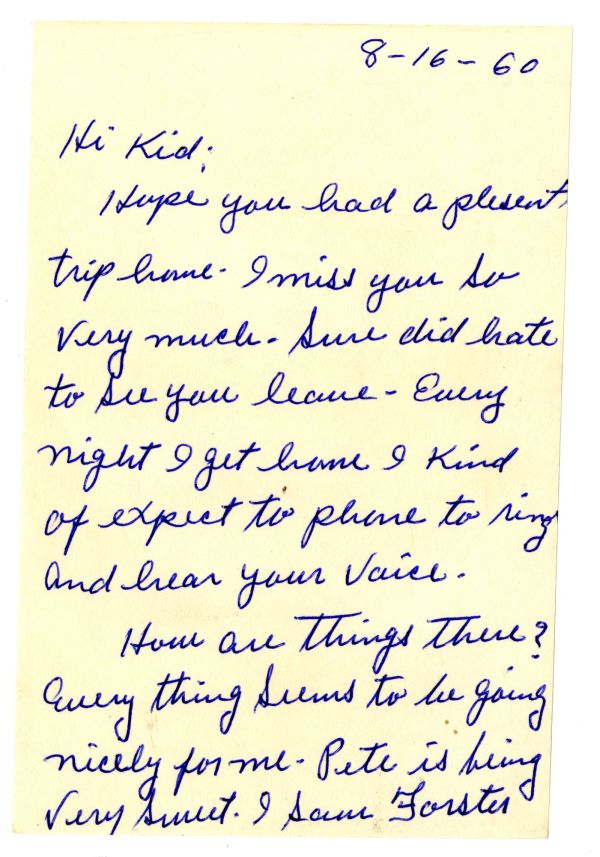 8-16-60
Hi Kid;
Hope you had a plesent
trip home. I miss you so
very much. Sure did hate
to see you leave - Every
night I get home I kind
of expect to phone to ring
and hear your voice.
How are things there?
Every thing seems to be going
nicely for me. Pete is being
very sweet. I saw Forster